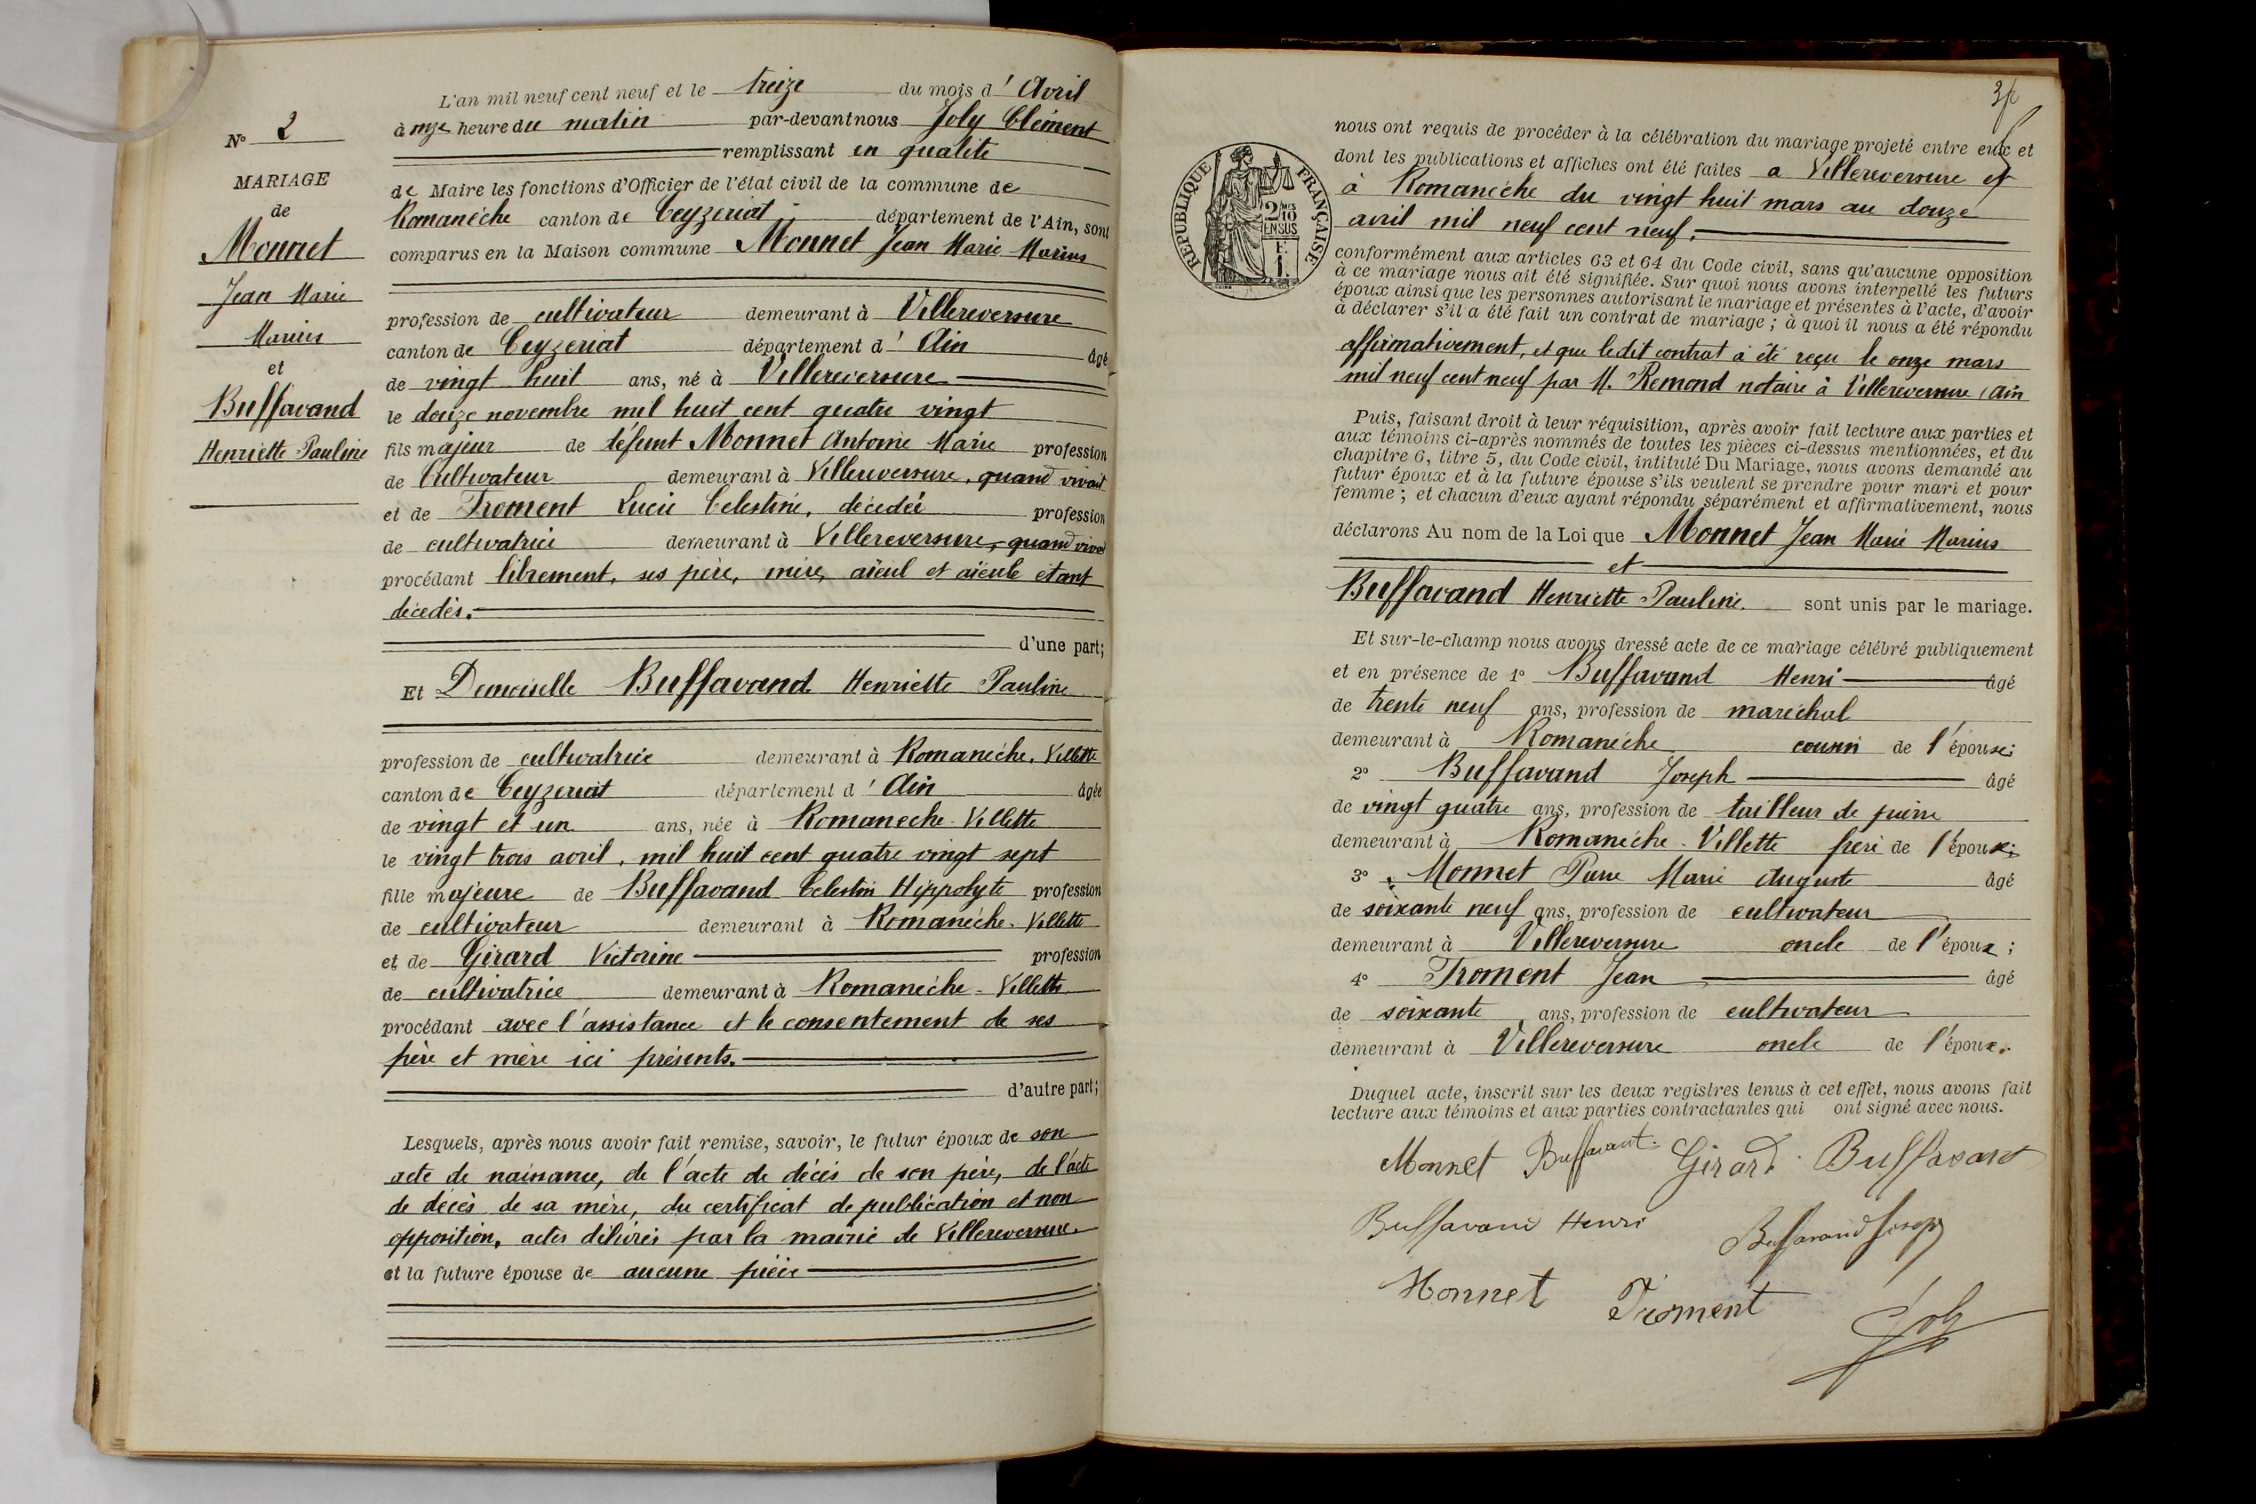 N° 2
MARIAGE
de
Monnet
Jean Marie
Marius
et
Buffavand
Henriette Pauline
L'an mil neuf cent neuf et le treize du mois d' Avril
à onze heure du matin par-devant nous Joly Clément
remplissant en qualité
de Maire les fonctions d'Officier de l'état civil de la commune de
Romanèche canton de Ceyzeriat département de l'Ain, sont
comparus en la Maison commune Monnet Jean Marie Marius
profession de cultivateur demeurant à Villereversure
canton de Ceyzeriat département d' Ain âgé
de vingt huit ans, né à Villereversure
le douze novembre mil huit cent quatre vingt
fils majeur de défunt Monnet Antoine Marie profession
de Cultivateur demeurant à Villereversure, quand vivait
et de Froment Lucie Celestine, décédée profession
de cultivatrice demeurant à Villereversure, quand vivait
procédant librement, ses père, mère, aïeul et aïeule étant
décédés.
d'une part;
Et Demoiselle Buffavand Henriette Pauline
profession de cultivatrice demeurant à Romanèche. Villette
canton de Ceyzeriat département d' Ain âgée
de vingt et un ans, née à Romanèche-Villette
le vingt trois avril, mil huit cent quatre vingt sept
fille majeure de Buffavand Celestin Hippolyte profession
de cultivateur demeurant à Romanèche-Villette
et de Girard Victorine profession
de cultivatrice demeurant à Romanèche-Villette
procédant avec l'assistance et le consentement de ses
père et mère ici présents.
d'autre part;
Lesquels, après nous avoir fait remise, savoir, le futur époux de son
acte de naissance, de l'acte de décès de son père, de l'acte
de décès de sa mère, du certificat de publication et non
opposition, actes délivrés par la mairie de Villereversure.
et la future épouse de aucune pièce
RÉPUBLIQUE FRANÇAISE
2/10
EN SUS
nous ont requis de procéder à la célébration du mariage projeté entre eux et
dont les publications et affiches ont été faites a Villereversure et
à Romanèche du vingt huit mars au douze
avril mil neuf cent neuf.
conformément aux articles 63 et 64 du Code civil, sans qu'aucune opposition
à ce mariage nous ait été signifiée. Sur quoi nous avons interpellé les futurs
époux ainsi que les personnes autorisant le mariage et présentes à l'acte, d'avoir
à déclarer s'il a été fait un contrat de mariage ; à quoi il nous a été répondu
affirmativement, et que ledit contrat a été reçu le onze mars
mil neuf cent neuf par M. Remond notaire à Villereversure (Ain
Puis, faisant droit à leur réquisition, après avoir fait lecture aux parties et
aux témoins ci-après nommés de toutes les pièces ci-dessus mentionnées, et du
chapitre 6, titre 5, du Code civil, intitulé Du Mariage, nous avons demandé au
futur époux et à la future épouse s'ils veulent se prendre pour mari et pour
femme ; et chacun d'eux ayant répondu séparément et affirmativement, nous
déclarons Au nom de la Loi que Monnet Jean Marie Marius
et
Buffavand Henriette Pauline. sont unis par le mariage.
Et sur-le-champ nous avons dressé acte de ce mariage célébré publiquement
et en présence de 1° Buffavand Henri âgé
de trente neuf ans, profession de maréchal
demeurant à Romanèche cousin de l'épouse;
2° Buffavand Joseph âgé
de vingt quatre ans, profession de tailleur de pierre
demeurant à Romanèche-Villette frère de l'épouse;
3° Monnet Pierre Marie Auguste âgé
de soixante neuf ans, profession de cultivateur
demeurant à Villereversure oncle de l'époux ;
4° Froment Jean âgé
de soixante ans, profession de cultivateur
demeurant à Villereversure oncle de l'époux.
Duquel acte, inscrit sur les deux registres tenus à cet effet, nous avons fait
lecture aux témoins et aux parties contractantes qui ont signé avec nous.
Monnet Buffavant Girard Buffavand
Buffavand Henri Buffavand Joseph
Monnet Froment Joly